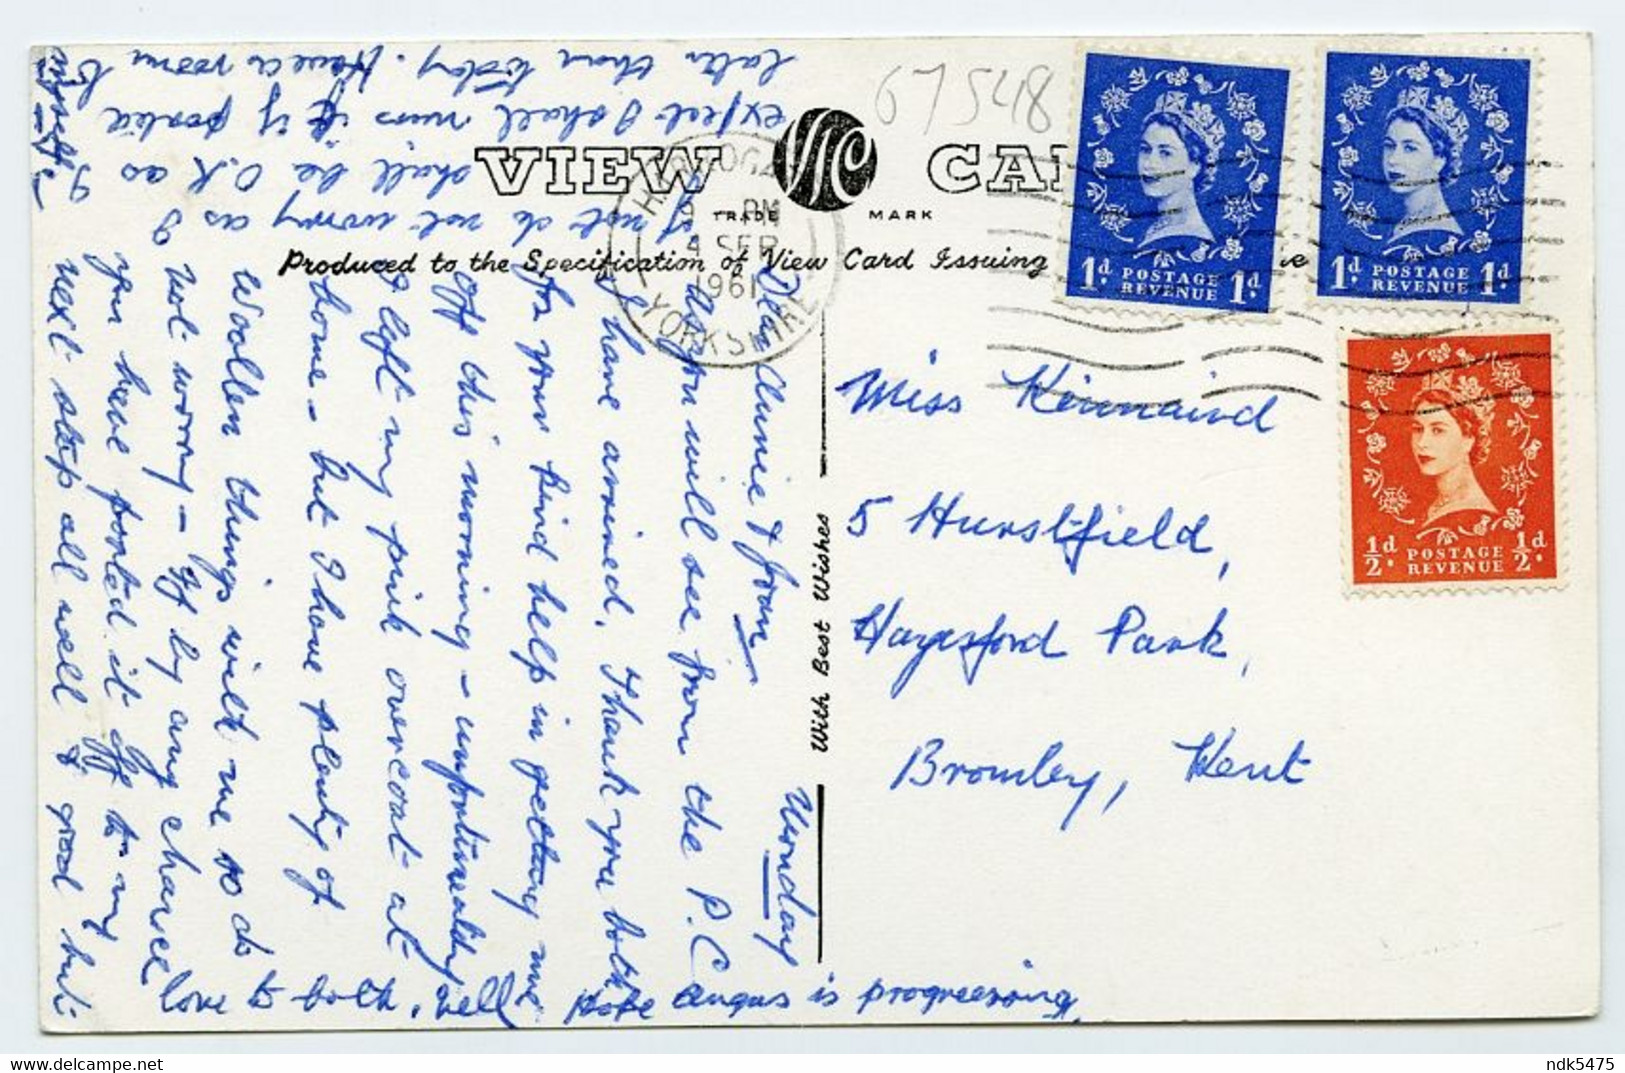 67548
VIEW CA
TRADE MARK
Produced to the Specification of View Card Issuing
HARROGATE
PM
4 SEP
1961
YORKSHIRE
1d POSTAGE REVENUE 1d
1d POSTAGE REVENUE 1d
½d POSTAGE REVENUE ½d
With Best Wishes
Miss Kinnaird
5 Hurstfield,
Hayesford Park,
Bromley, Kent
Monday
Dear Annie & Joan
As you will see from the P.C
I have arrived. Thank you both
for your kind help in getting me
off this morning - unfortunately
I left my pink overcoat at
home - but I have plenty of
woollen things with me so do
not worry - If by any chance
you have posted it off to my
next stop all well & good but
if not do not worry as I
shall be O.K as I
expect I shall miss it if posted
later than today. Have a room to
myself
love to both, Nell Hope Angus is progressing,
ndk5475